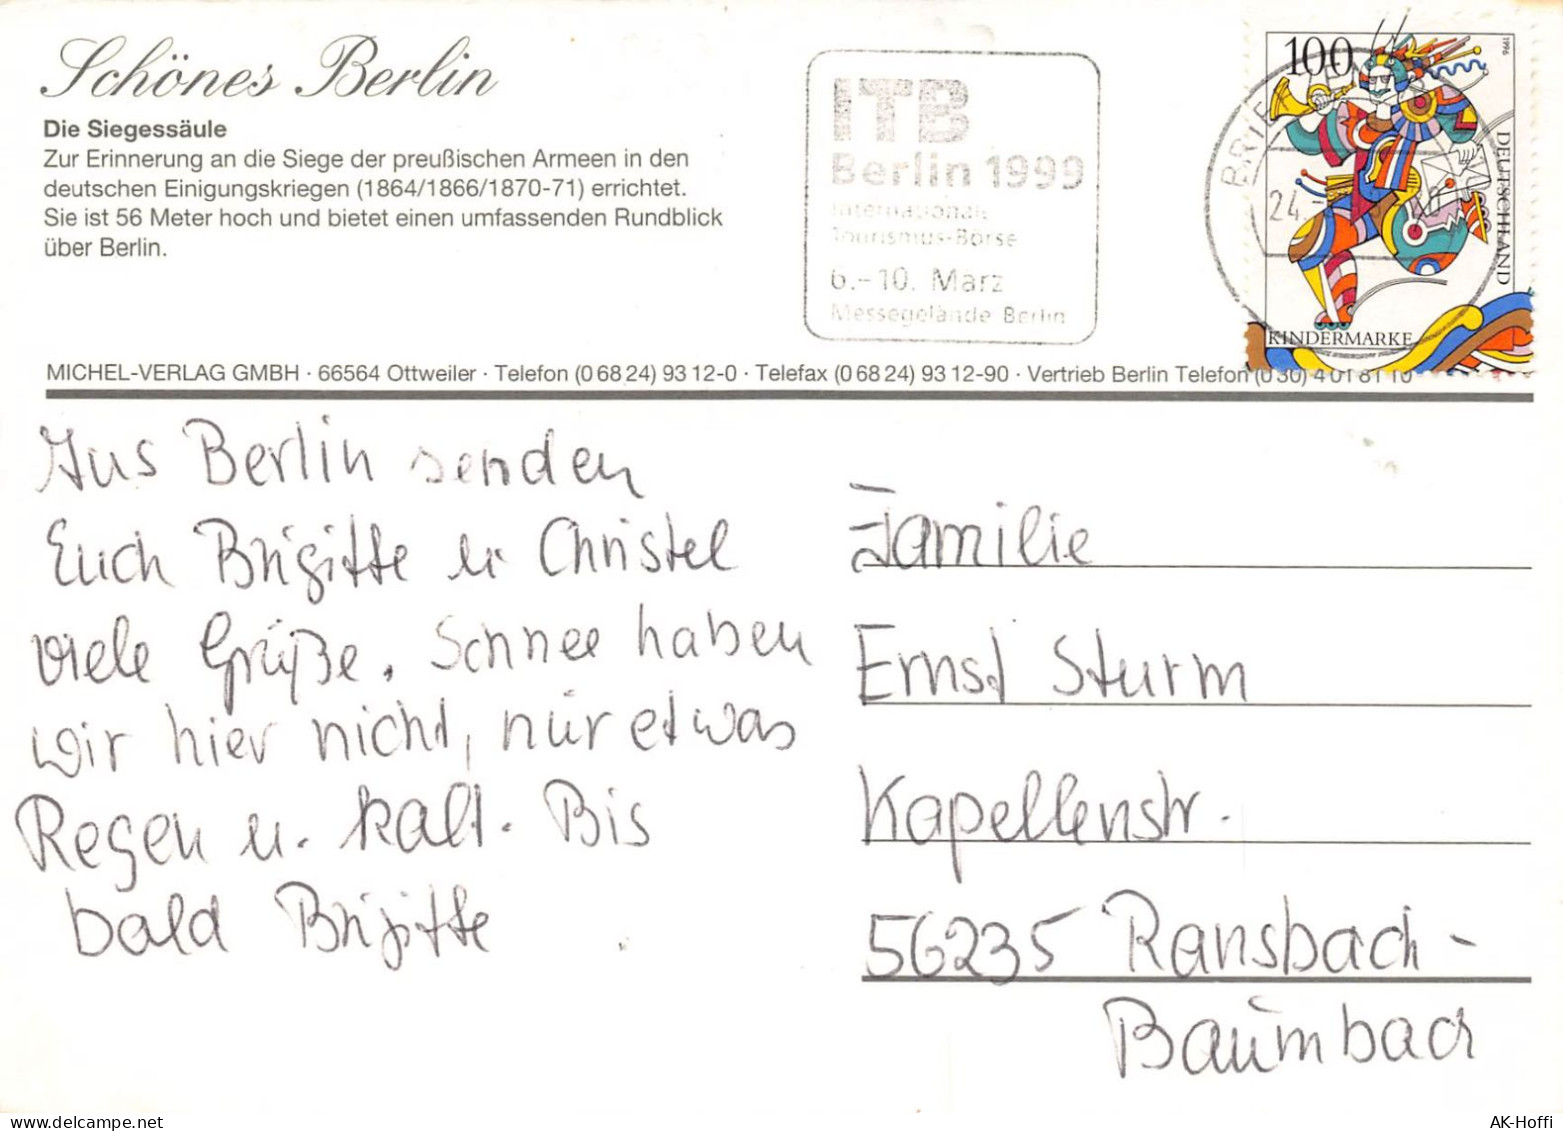 Schönes Berlin
Die Siegessäule
Zur Erinnerung an die Siege der preußischen Armeen in den
deutschen Einigungskriegen (1864/1866/1870-71) errichtet.
Sie ist 56 Meter hoch und bietet einen umfassenden Rundblick
über Berlin.
ITB
Berlin 1999
Internationale
Tourismus-Börse
6.-10. März
Messegelände Berlin
100
1996
DEUTSCHLAND
KINDERMARKE
24.
MICHEL-VERLAG GMBH · 66564 Ottweiler · Telefon (0 68 24) 93 12-0 · Telefax (0 68 24) 93 12-90 · Vertrieb Berlin Telefon (0 30) 4 01 81 10
Aus Berlin senden
Euch Brigitte u Christel
viele Grüße. Schnee haben
wir hier nicht, nur etwas
Regen u. kalt. Bis
bald Brigitte
Familie
Ernst Sturm
Kapellenstr.
56235 Ransbach-
Baumbach
AK-Hoffi